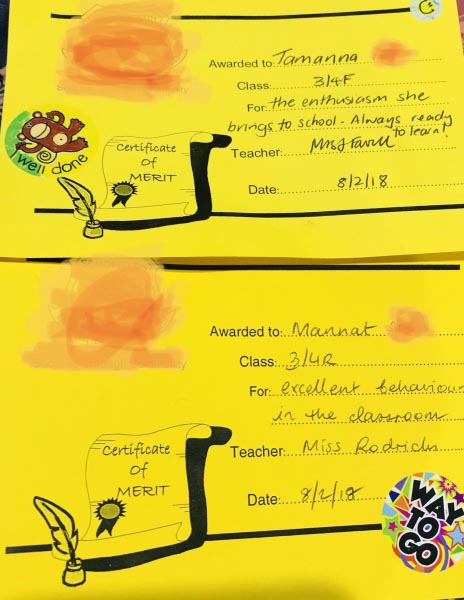 Awarded to: Tamanna
Class: 3/4F
For: the enthusiasm she
brings to school - Always ready
to learn!
Teacher: Mrs J Farrell
Date: 8/2/18
well done
Certificate
Of
MERIT
Awarded to: Mannat
Class: 3/4R
For: excellent behaviour
in the classroom
Teacher: Miss
Date: 8/2/18
Certificate
Of
MERIT
WAY
TO
GO